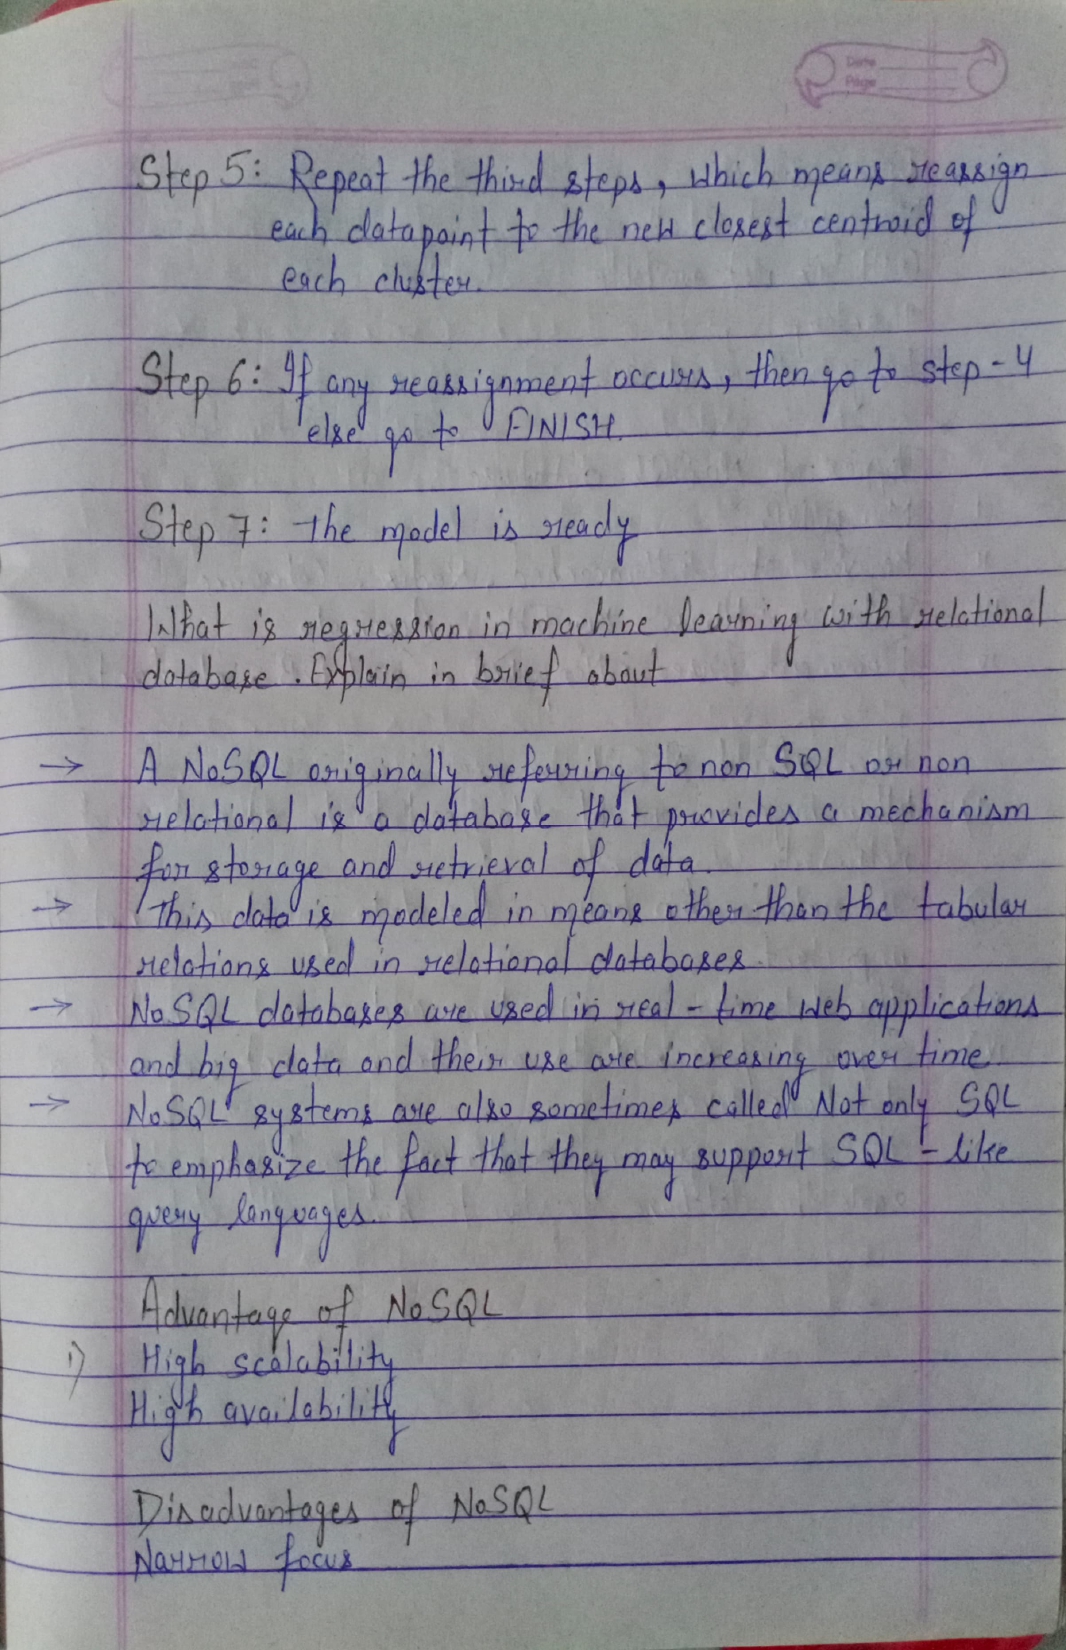 Date
Page
Step 5: Repeat the third steps, which means reassign
each datapoint to the new closest centroid of
each cluster.
Step 6: If any reassignment occurs, then go to step-4
else go to FINISH.
Step 7: The model is ready
What is regression in machine learning with relational
database. Explain in brief about
→ A NoSQL originally referring to non SQL or non
relational is a database that provides a mechanism
for storage and retrieval of data.
→ This data is modeled in means other than the tabular
relations used in relational databases.
→ NoSQL databases are used in real-time web applications
and big data and their use are increasing over time.
→ NoSQL systems are also sometimes called Not only SQL
to emphasize the fact that they may support SQL-like
query languages.
Advantage of NoSQL
1) High scalability
High availability
Disadvantages of NoSQL
Narrow focus